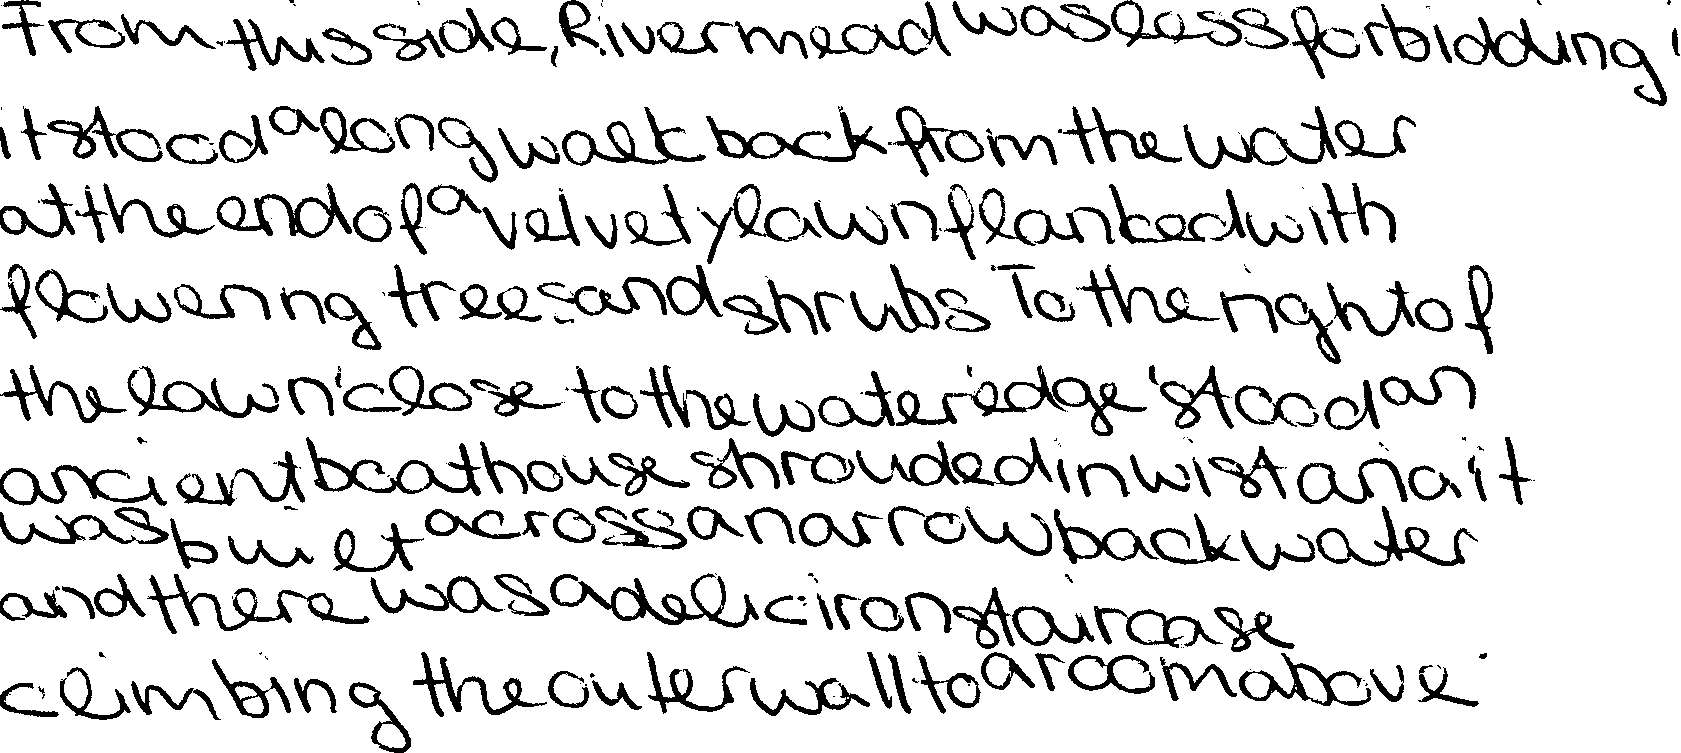 From this side, Rivermead was less forbidding '
it stood a long walk back from the water
at the end of a velvety lawn flanked with
flowering trees and shrubs To the right of
the lawn ' close to the water ' edge ' stood an
ancient boathouse shrouded in wistaria ' it
was built across a narrow backwater
and there was a delic iron staircase
climbing the outer wall to a room above .